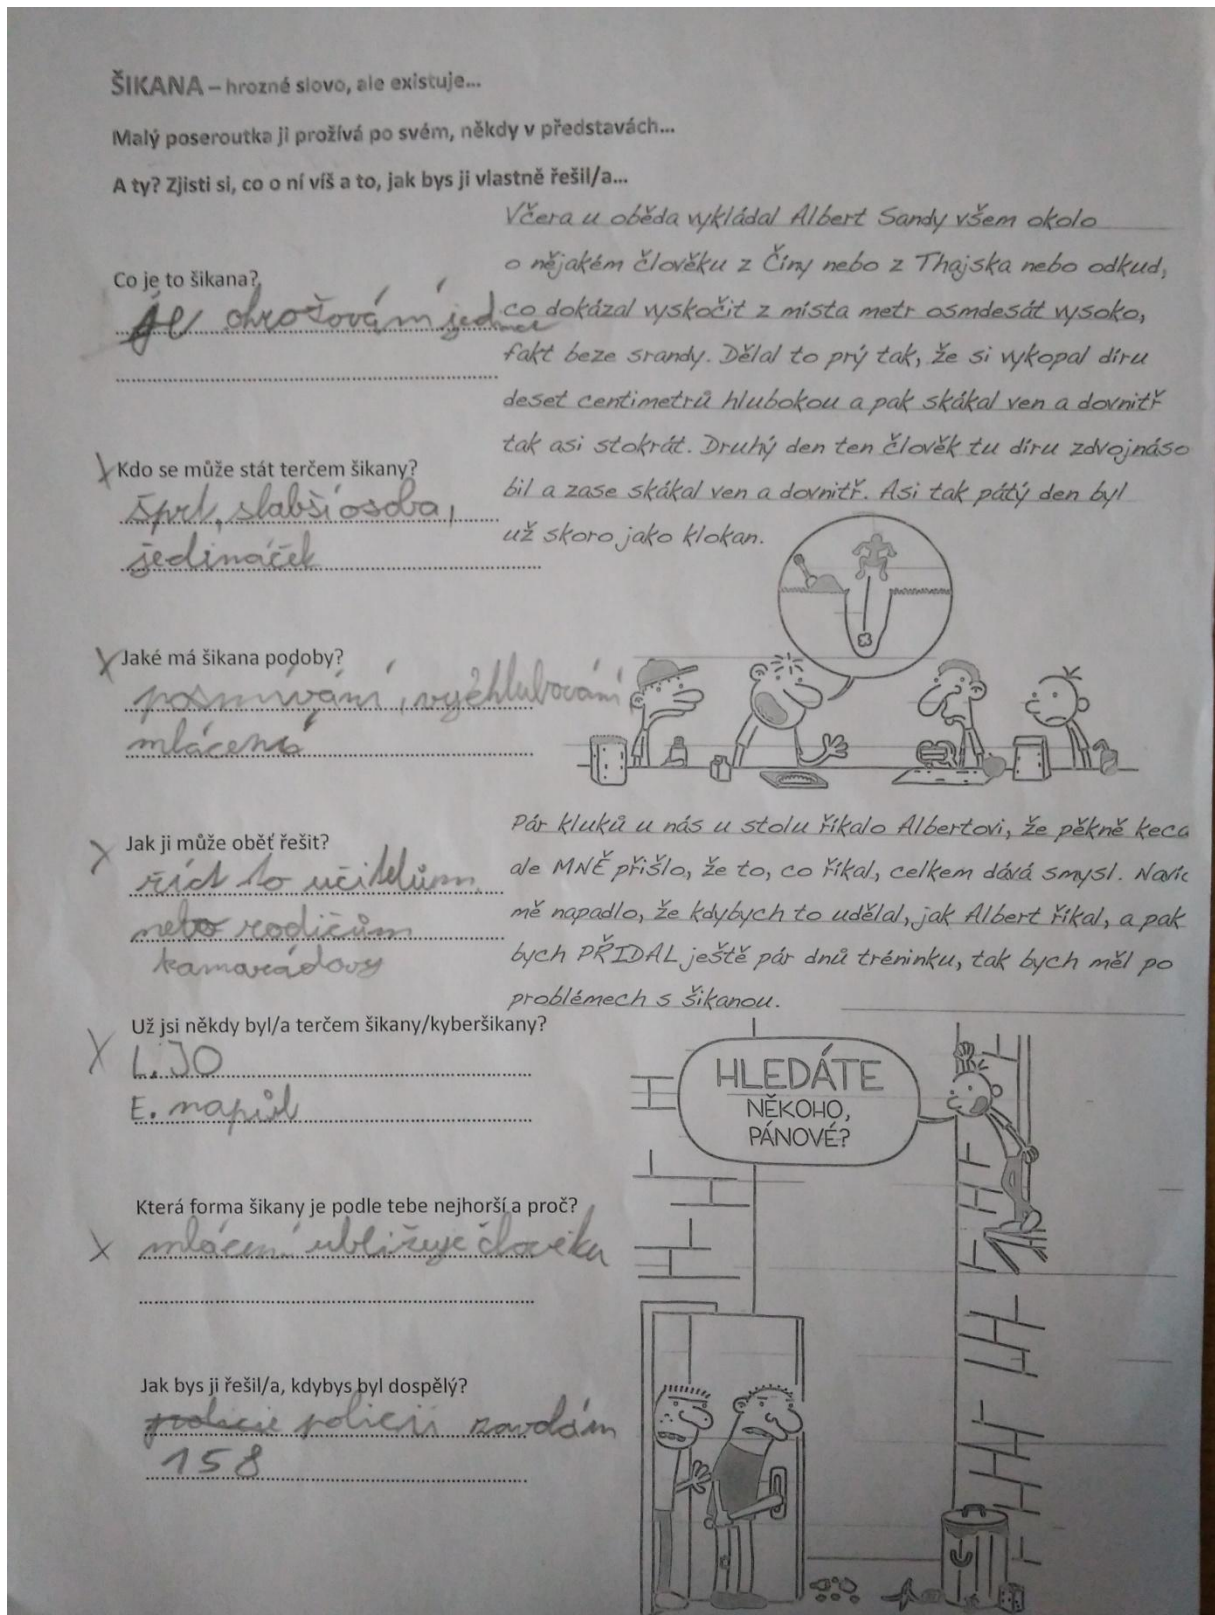 ŠIKANA – hrozné slovo, ale existuje...
Malý poseroutka ji prožívá po svém, někdy v představách...
A ty? Zjisti si, co o ní víš a to, jak bys ji vlastně řešil/a...
Co je to šikana?
je ohrožování
Kdo se může stát terčem šikany?
šprt, slabší osoba,
jedináček
Jaké má šikana podoby?
posmívání, vychlubování,
mlácení
Jak ji může oběť řešit?
říct to učitelům
nebo rodičům
kamarádovy
Už jsi někdy byl/a terčem šikany/kyberšikany?
L. JO
E. napůl
Která forma šikany je podle tebe nejhorší a proč?
mlácení ubližuje člověku
Jak bys ji řešil/a, kdybys byl dospělý?
policie policii zavolám
158
Včera u oběda vykládal Albert Sandy všem okolo
o nějakém člověku z Číny nebo z Thajska nebo odkud,
co dokázal vyskočit z místa metr osmdesát vysoko,
fakt beze srandy. Dělal to prý tak, že si vykopal díru
deset centimetrů hlubokou a pak skákal ven a dovnitř
tak asi stokrát. Druhý den ten člověk tu díru zdvojnáso
bil a zase skákal ven a dovnitř. Asi tak pátý den byl
už skoro jako klokan.
Pár kluků u nás u stolu říkalo Albertovi, že pěkně keca
ale MNĚ přišlo, že to, co říkal, celkem dává smysl. Navíc
mě napadlo, že kdybych to udělal, jak Albert říkal, a pak
bych PŘIDAL ještě pár dnů tréninku, tak bych měl po
problémech s šikanou.
HLEDÁTE
NĚKOHO,
PÁNOVÉ?